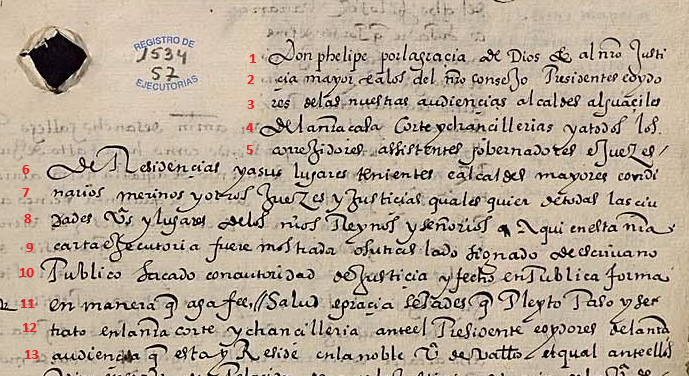 REGISTRO DE
1534
57
EJECUTORIAS
1 Don phelipe por la gracia de Dios & al nro Justi
2 cia mayor e a los del nro consejo Presidentes e oydo
3 res de las nuestras audiencias alcaldes alguaciles
4 de la nra casa corte y chancillerias y a todos los
5 corregidores assistentes gobernadores e Juezes /
6 de Residencias y a sus lugares tenientes e alcaldes mayores e ordi
7 narios merinos y otros Juezes y Justicias quales quier de todas las ciu
8 dades Vs y lugares de los nros Reynos y señorios a qui en esta nra
9 carta executoria fuere mostrada o su traslado signado de escrivano
10 Publico sacado con autoridad de Justicia y fecho en Publica forma
11 en manera q aga fee, // Salud e gracia sepades q Pleyto Paso y se
12 trato en la nra corte y chancilleria ante el Presidente e oydores de la nra
13 audiencia q esta y Reside en la noble Va de Vallid et qual ante ellos